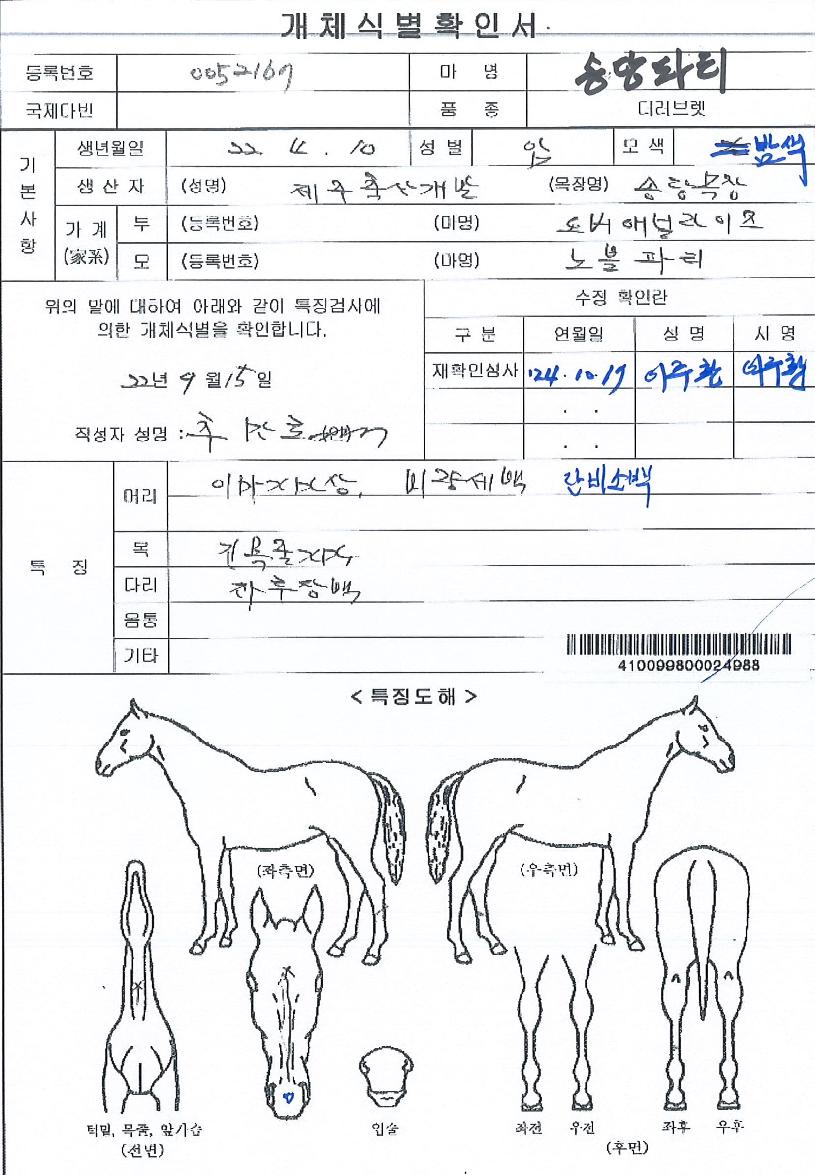 개체식별확인서
등록번호 0052167 마 명 송당파티
국제다빈 품 종 더러브렛
기본사항
생년월일 22. 4. 10 성별 암 모색 밤색
생산자 (성명) 제주축산개발 (목장명) 송당목장
가계(家系) 부 (등록번호) (마명) 오버애널라이즈
모 (등록번호) (마명) 노블파티
위의 말에 대하여 아래와 같이 특징검사에
의한 개체식별을 확인합니다.
22년 9월 15일
작성자 성명 :
수정 확인란
구 분 연월일 성 명 서 명
재확인심사 '24. 10. 17 이주환 이주환
. .
. .
특 징
머리 비량세백
목
다리 좌후장백
몸통
기타
410099800024988
< 특징도해 >
(좌측면) (우측면)
턱밑, 목줌, 앞가슴
(전면)
입술
좌전 우전 좌후 우후
(후면)